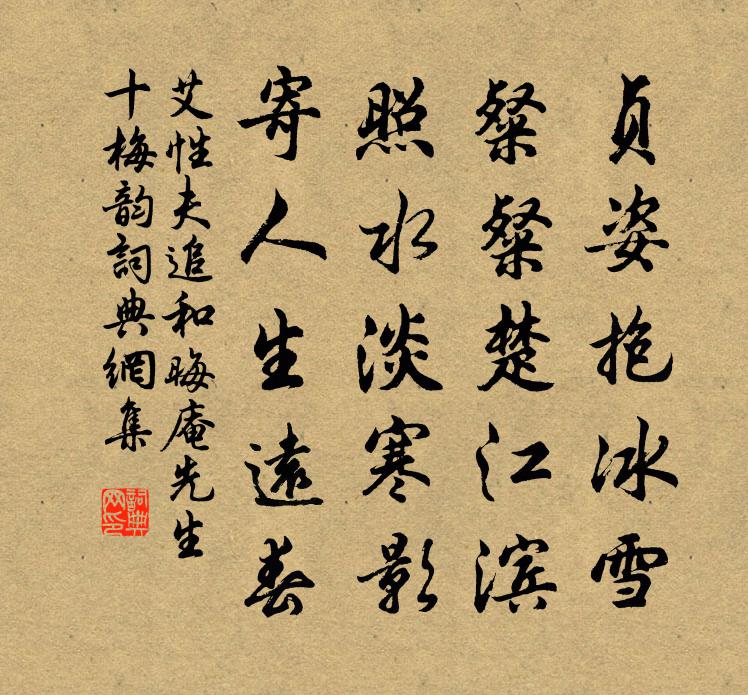 贞姿抱冰雪
粲粲楚江滨
照水淡寒影
寄人生远春
艾性夫追和晦庵先生
十梅韵詞典網集
詞典网印